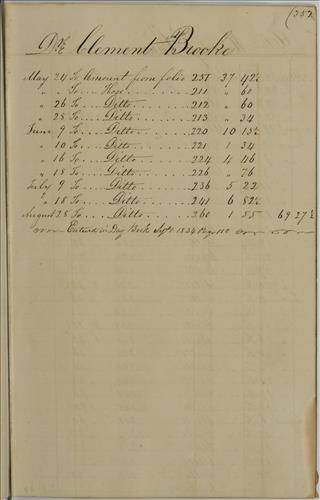 (352
Dr. Clement Brooke
May 24 To Amount from folio 251 37 42½
" " To .... Hose ........ 211 " 60
" 26 To ..... Ditto ........ 212 " 60
" 28 To ..... Ditto ........ 213 " 34
June 9 To ..... Ditto ........ 220 10 15½
" 10 To ..... Ditto ........ 221 1 34
" 16 To ..... Ditto ........ 224 4 46
" 18 To ..... Ditto ........ 226 " 76
July 9 To ..... Ditto ........ 236 5 22
" 18 To ..... Ditto ........ 241 6 82½
August 28 To ..... Ditto ........ 260 1 55 69 27½
Entered in Day Book Sept. 1834 Page 110